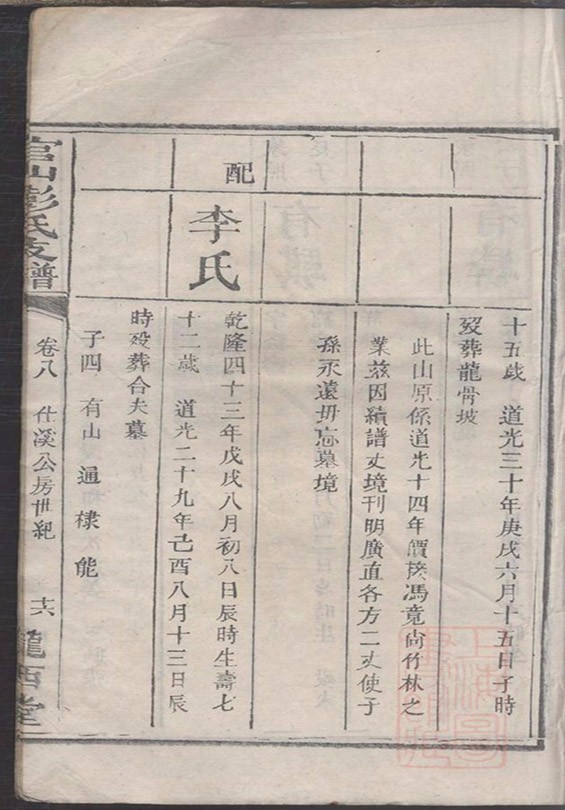 十五歲　道光三十年庚戌六月十五日子時
歿葬龍骨坡
此山原係道光十四年價接馮竟尙竹林之
業茲因續譜丈境刊明廣直各方二丈使子
孫永遠毋忘墓境
配
李氏
乾隆四十三年戊戌八月初八日辰時生壽七
十二歲　道光二十九年己酉八月十三日辰
時殁葬合夫墓
子四　有山　通　棣　能
官山彭氏支譜
卷八　仕溪公房世紀　十六
隴西堂